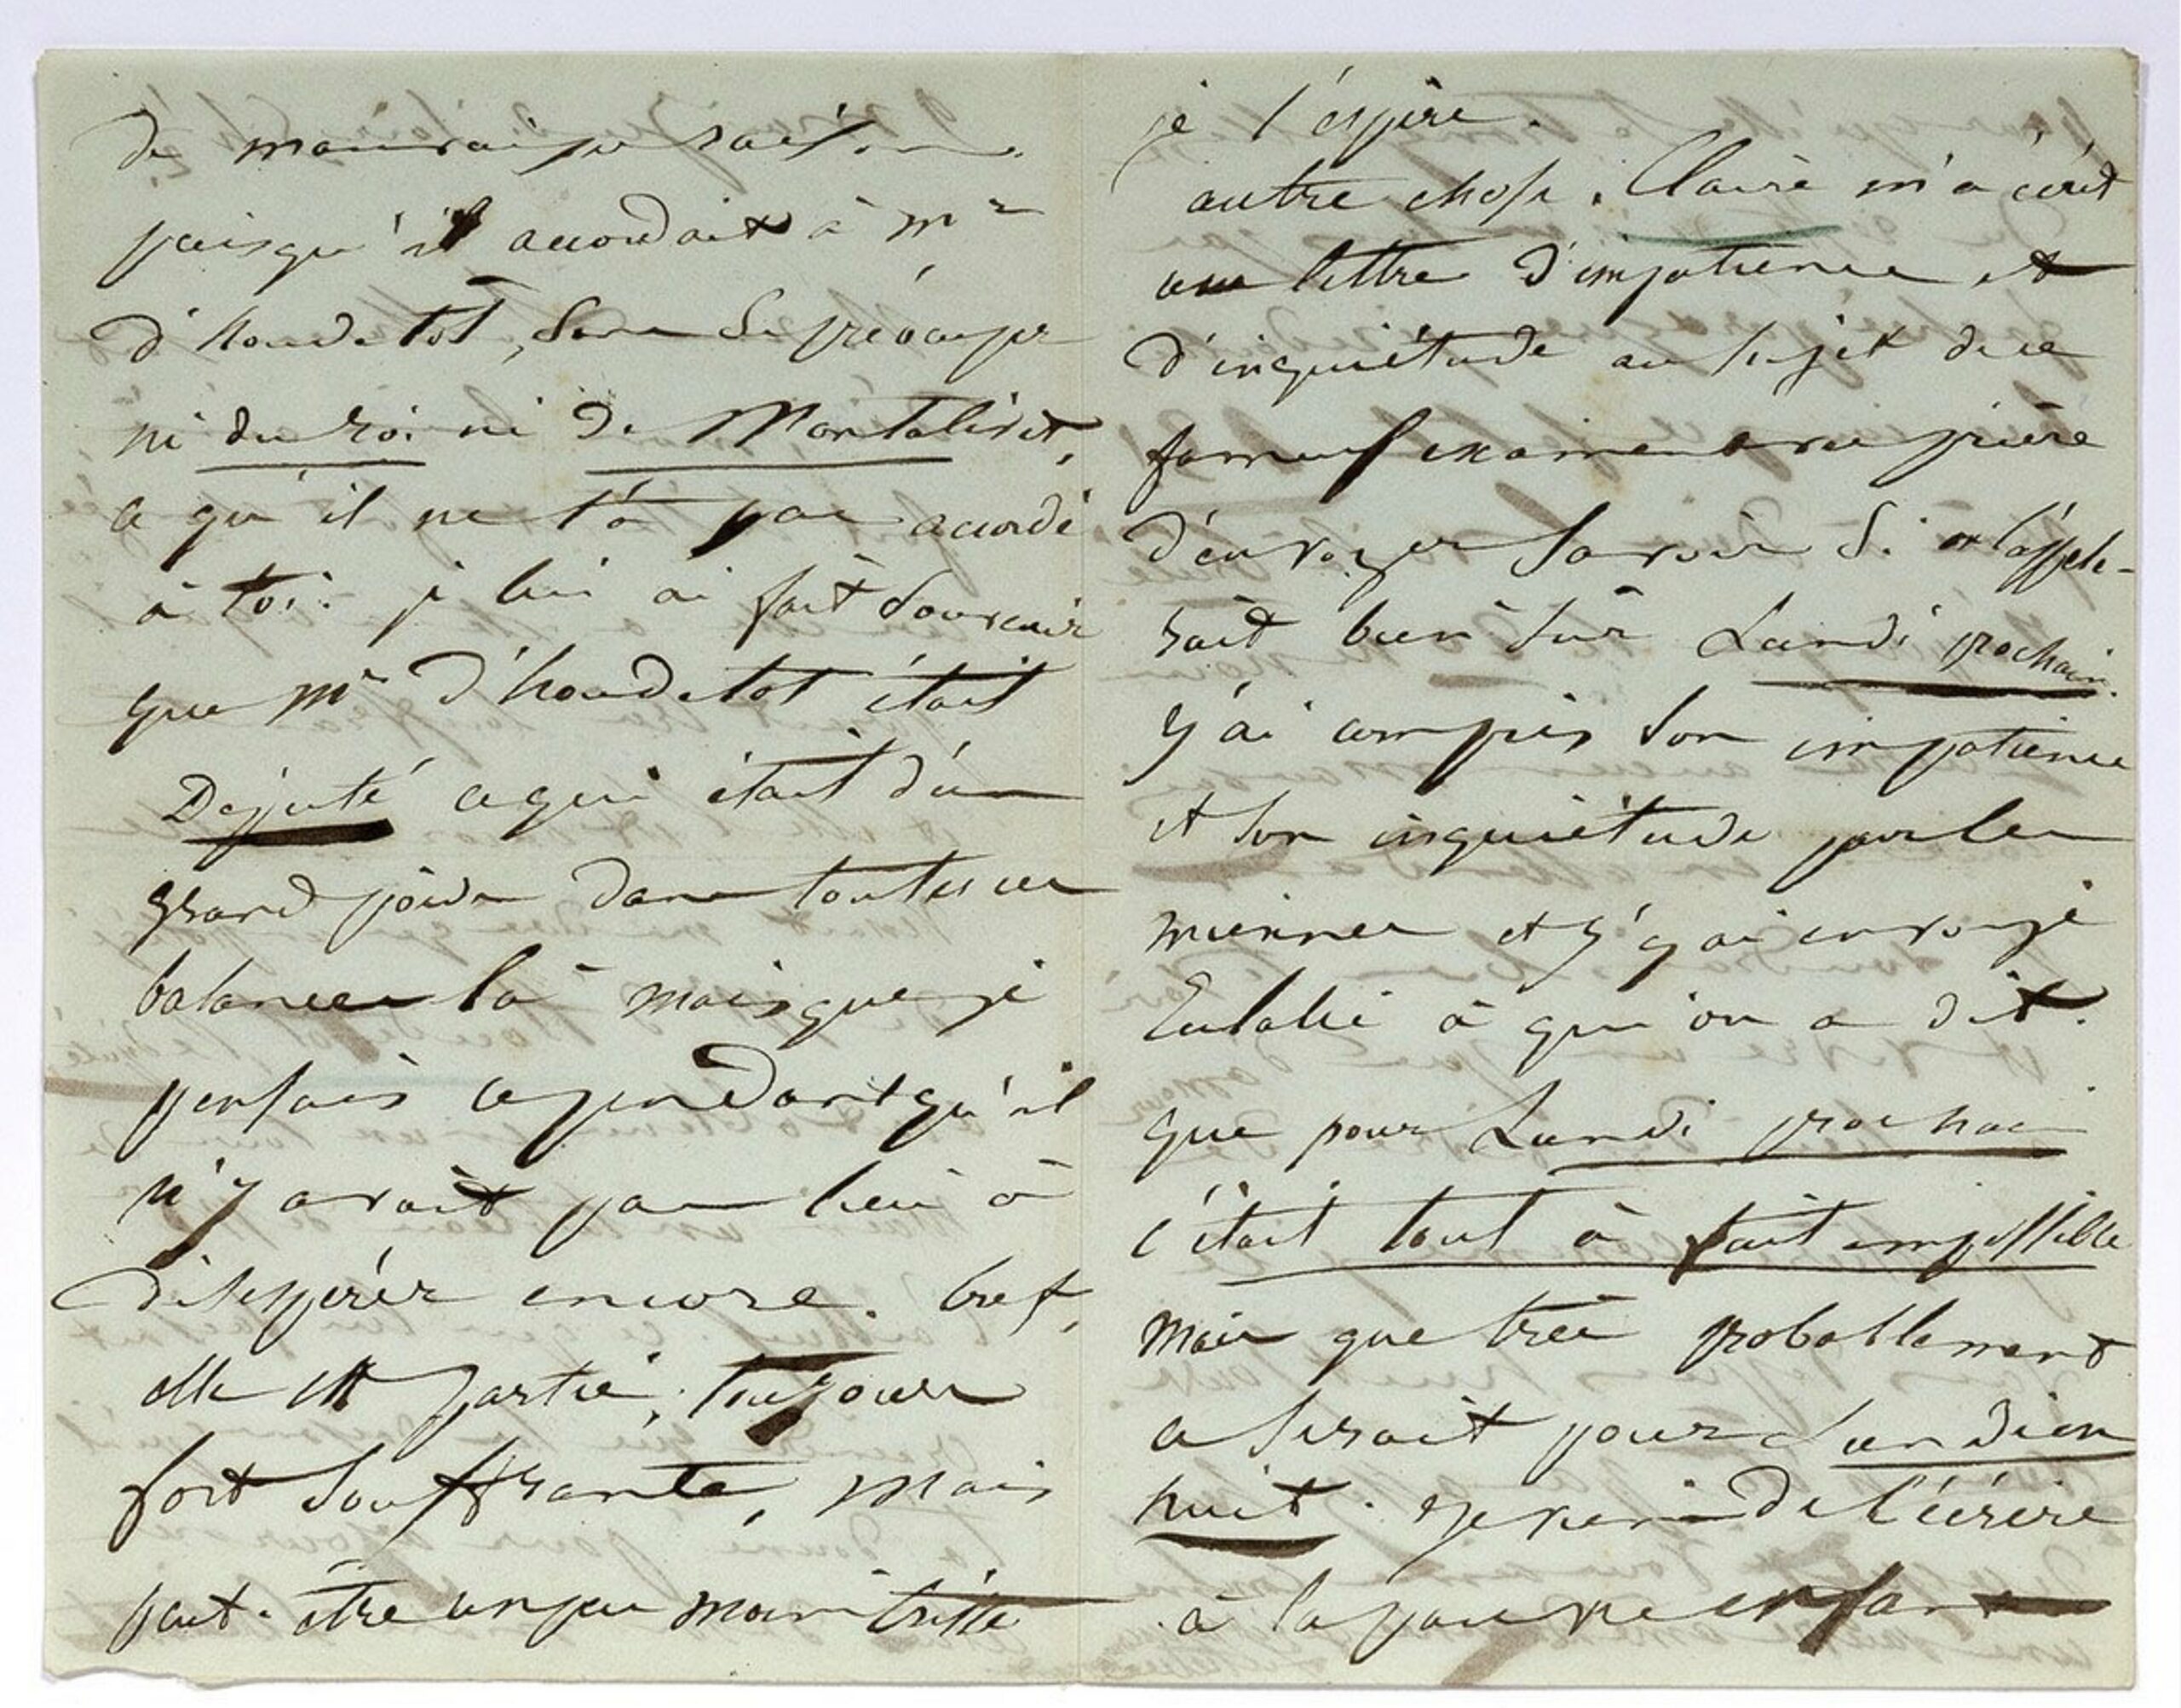 de mauvaise raison
puisqu'il accordait à Mr
d'houdetot, sans se préocuper
ni du roi ni de Montalivet,
ce qu'il ne t'a pas accordé
à toi. je lui ai fait souvenir
que Mr d'houdetot était
Député ce qui était d'un
grand poids dans toutes ces
balances là mais que je
pensais cependant qu'il
n'y avait pas lieu à
désespérer encore. bref,
elle est partie, toujours
fort souffrante, mais
peut-être un peu moins triste
je l'espère.
autre chose. Claire m'a écrit
une lettre d'impatience et
d'inquiétude au sujet de ce
fameux examen avec prière
d'envoyer savoir si on l'appele-
rait bien sûr Lundi prochain.
J'ai compris son impatience
et son inquiétude par les
miennes et j'y ai envoyé
Eulalie à qui on a dit.
que pour Lundi prochain
c'était tout à fait impossible
mais que très probablement
ce serait pour Lundi en
huit. Je viens de l'écrire
à la pauvre enfant